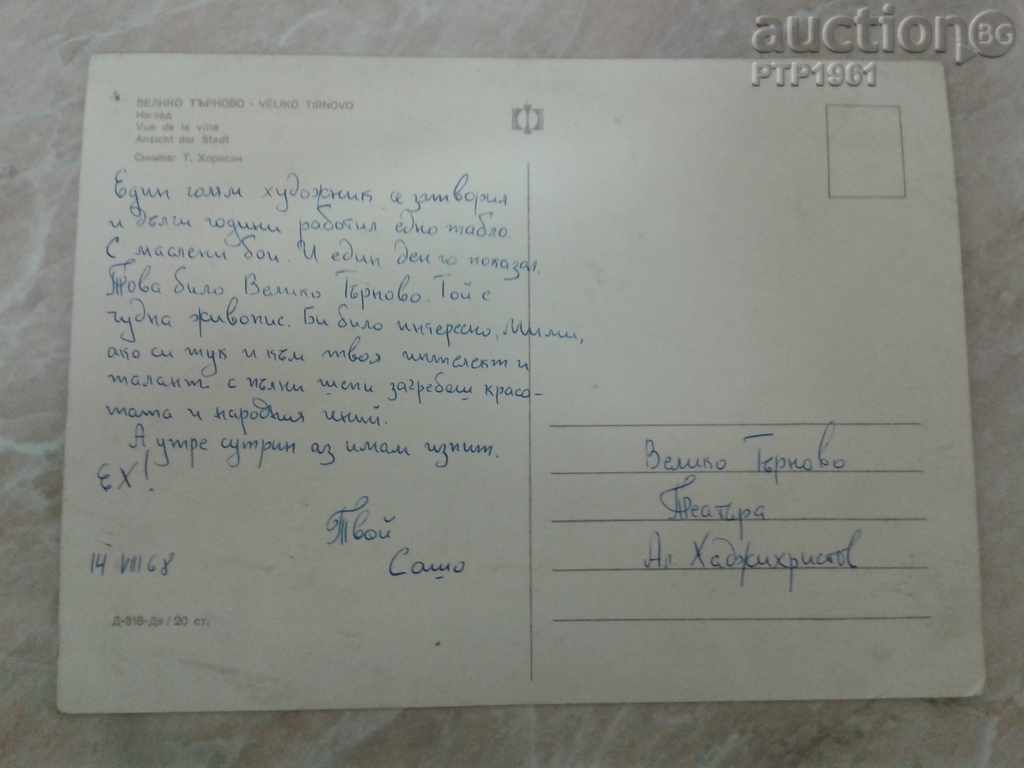 auction BG
PTP1961
ВЕЛИКО ТЪРНОВО - VELIKO TIRNOVO
Изглед
Vue de la ville
Ansicht der Stadt
Снимка: Т. Хорисян
Един голям художник се затворил
и дълги години работил едно табло.
С маслени бои. И един ден го показал.
Това било Велико Търново. Той е
чудна живопис. Би било интересно, Мими,
ако си тук и към твоя интелект и
талант с пълни шепи загребеш красо-
тата и народния гений.
А утре сутрин аз имам изпит.
ЕХ!
Твой
Сашо
14 VIII 68
Д-816-Дя / 20 ст.
Велико Търново
Театъра
Ал Хаджихристов